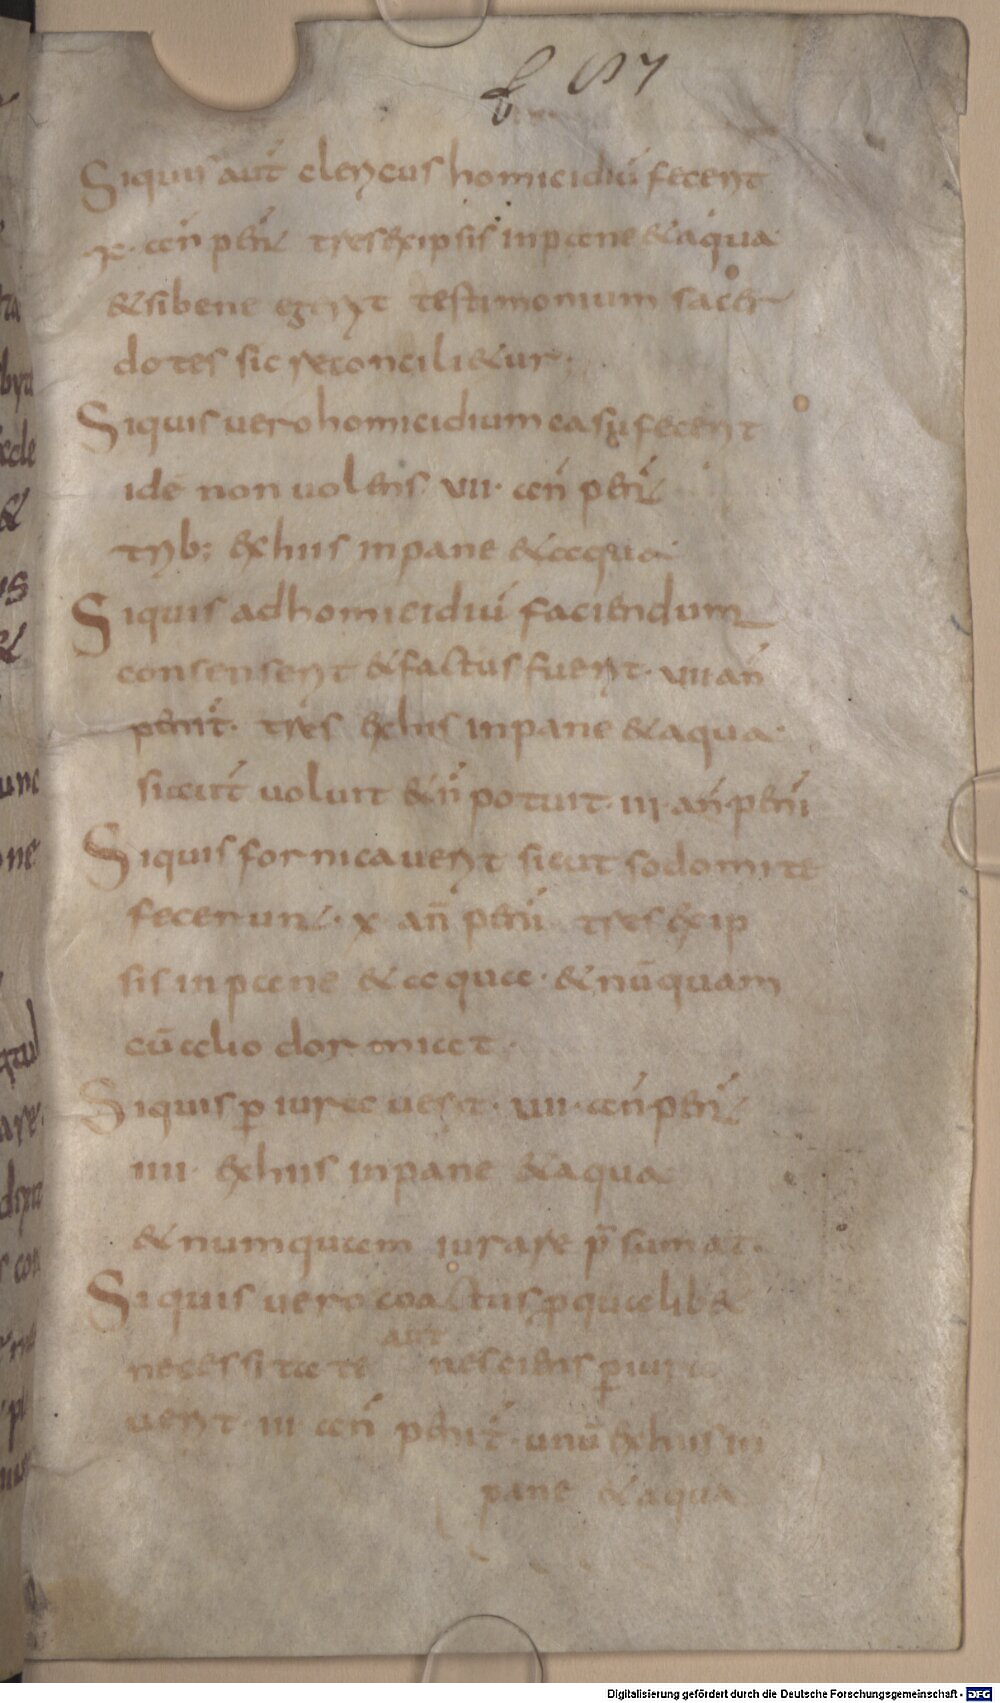 Siquis aut̄ clericus homicidiū fecerit
x. an̄ peni͛t tres exipsis inpane & aqua
& sibene egerit testimonium sacer
dotes sic reconcili&ur;
Siquis vero homicidium casu fecerit
idē non uolens VII. an̄ penit͛
trib; exhiis inpane & aqua
Siquis adhomicidiū faciendum
consenserit & factus fuerit. VII an̄
penit̄. tres exhis inpane & aqua.
siaut̄ voluit & n̄ potuit. III. an̄. peni
Siquis fornicaverit sicut sodomite
fecerunt. x an̄ peni tres exip
sis inpane & aqua. & nūquam
cū alio dormiat.
Siquis ꝑiuraverit. VIII. an̄. penit͛
IIII. exhiis inpane & aqua
& numquam iurare p̄sumat.
Siquis vero coactus ꝓqualib&
necessitate aut nesciens ꝑiura
verit. III an̄ penit̄. unū exhiis in
pane & aqua
Digitalisierung gefördert durch die Deutsche Forschungsgemeinschaft - DFG